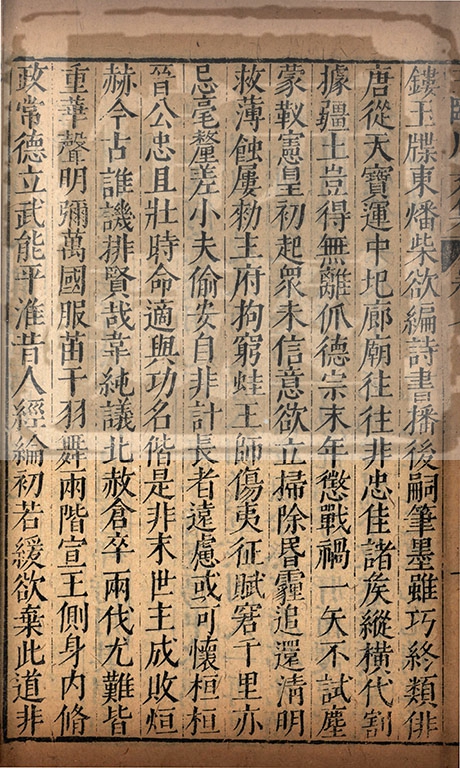 鏤玉牒東燔柴欲編詩書播後嗣筆墨雖巧終類俳
唐從天寶運中圯廊廟往往非忠佳諸矦縱橫代割
據疆土豈得無離德宗末年懲戰禍一矢不試塵
蒙靫憲皇初起衆未信意欲立掃除昬霾追還清明
救薄蝕屢勑主府拘窮蛙王師傷夷征賦窘千里亦
忌毫釐差小夫偷安自非計長者遠慮或可懷桓桓
晉公忠且壯時命適與功名偕是非末世主成敗烜
赫今古誰譏排賢哉韋純議北赦倉卒兩伐尤難皆
重華聲明彌萬國服苗干羽舞兩階宣王側身内脩
政常德立武能平淮昔人經綸初若緩欲棄此道非